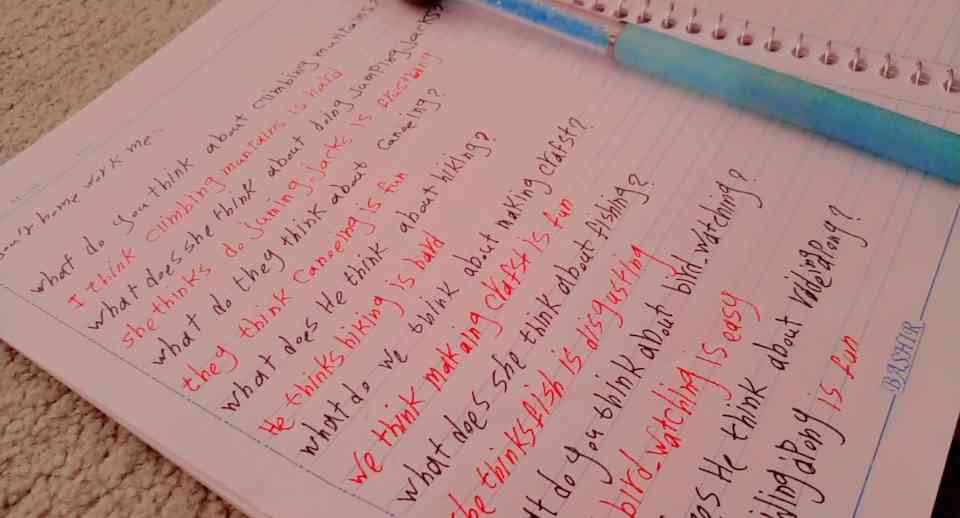 home work me
what do you think about climbing muntains?
I think climbing muntains is hard
what does she think about doing Jumping Jacks?
she think's do Juming Jacks is
what do they think about canoeing?
they think canoeing is fun
what does He think about hiking?
He thinks hiking is hard
what do we think about making crafst?
we think making crafst is fun
what does she think about fishing?
she thinks fish is disgusting
do you think about bird-watching?
bird-watching is easy
He think about
is fun
BASHIR